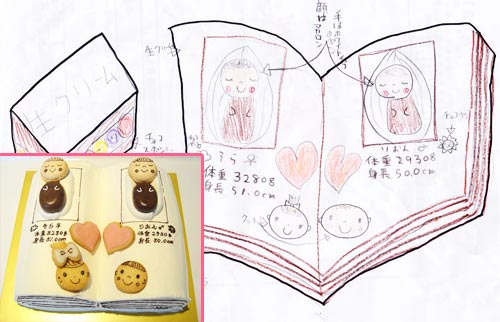 生クリーム
生クリーム
顔はマカロン
手はホワイトチョコ
チョコ
スポンジ
そら♀
体重3280g
身長51.0cm
りおん♂
体重2930g
身長50.0cm
クッキー
そら♀
体重3280g
身長51.0cm
りおん♂
体重2930g
身長50.0cm